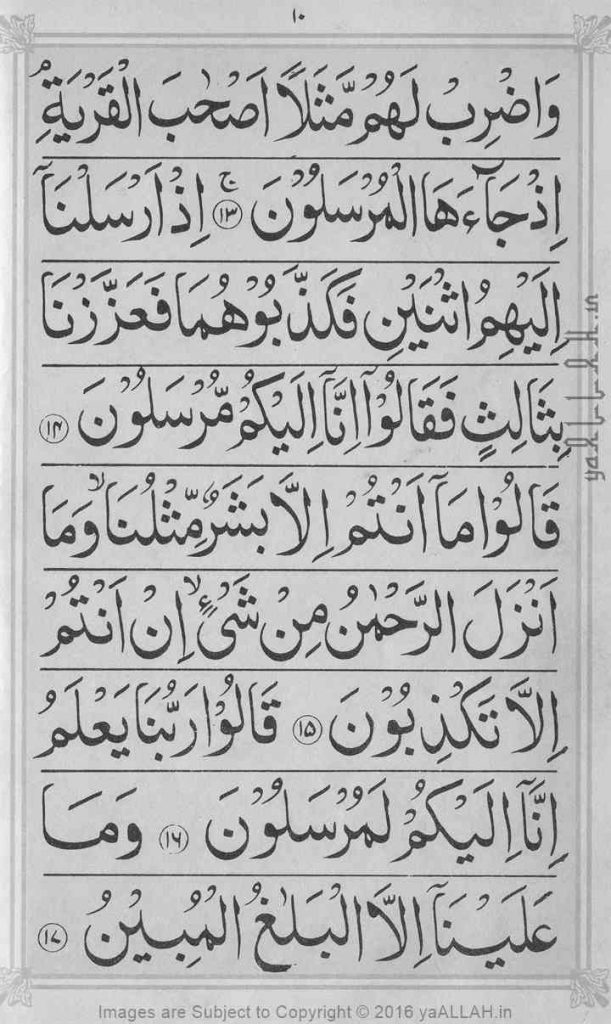 ١٠
وَاضْرِبْ لَهُمْ مَّثَلًا اَصْحٰبَ الْقَرْيَةِ ۘ
اِذْ جَآءَهَا الْمُرْسَلُوْنَ ۚ ﴿۱۳﴾ اِذْ اَرْسَلْنَاۤ
اِلَيْهِمُ اثْنَيْنِ فَكَذَّبُوْهُمَا فَعَزَّزْنَا
بِثَالِثٍ فَقَالُوْۤا اِنَّاۤ اِلَيْكُمْ مُّرْسَلُوْنَ ﴿۱۴﴾
قَالُوْا مَاۤ اَنْتُمْ اِلَّا بَشَرٌ مِّثْلُنَا ۙ وَمَاۤ
اَنْزَلَ الرَّحْمٰنُ مِنْ شَىْءٍ ۙ اِنْ اَنْتُمْ
اِلَّا تَكْذِبُوْنَ ﴿۱۵﴾ قَالُوْا رَبُّنَا يَعْلَمُ
اِنَّاۤ اِلَيْكُمْ لَمُرْسَلُوْنَ ﴿۱۶﴾ وَمَا
عَلَيْنَاۤ اِلَّا الْبَلٰغُ الْمُبِيْنُ ﴿۱۷﴾
yaALLAH.in
Images are Subject to Copyright © 2016 yaALLAH.in